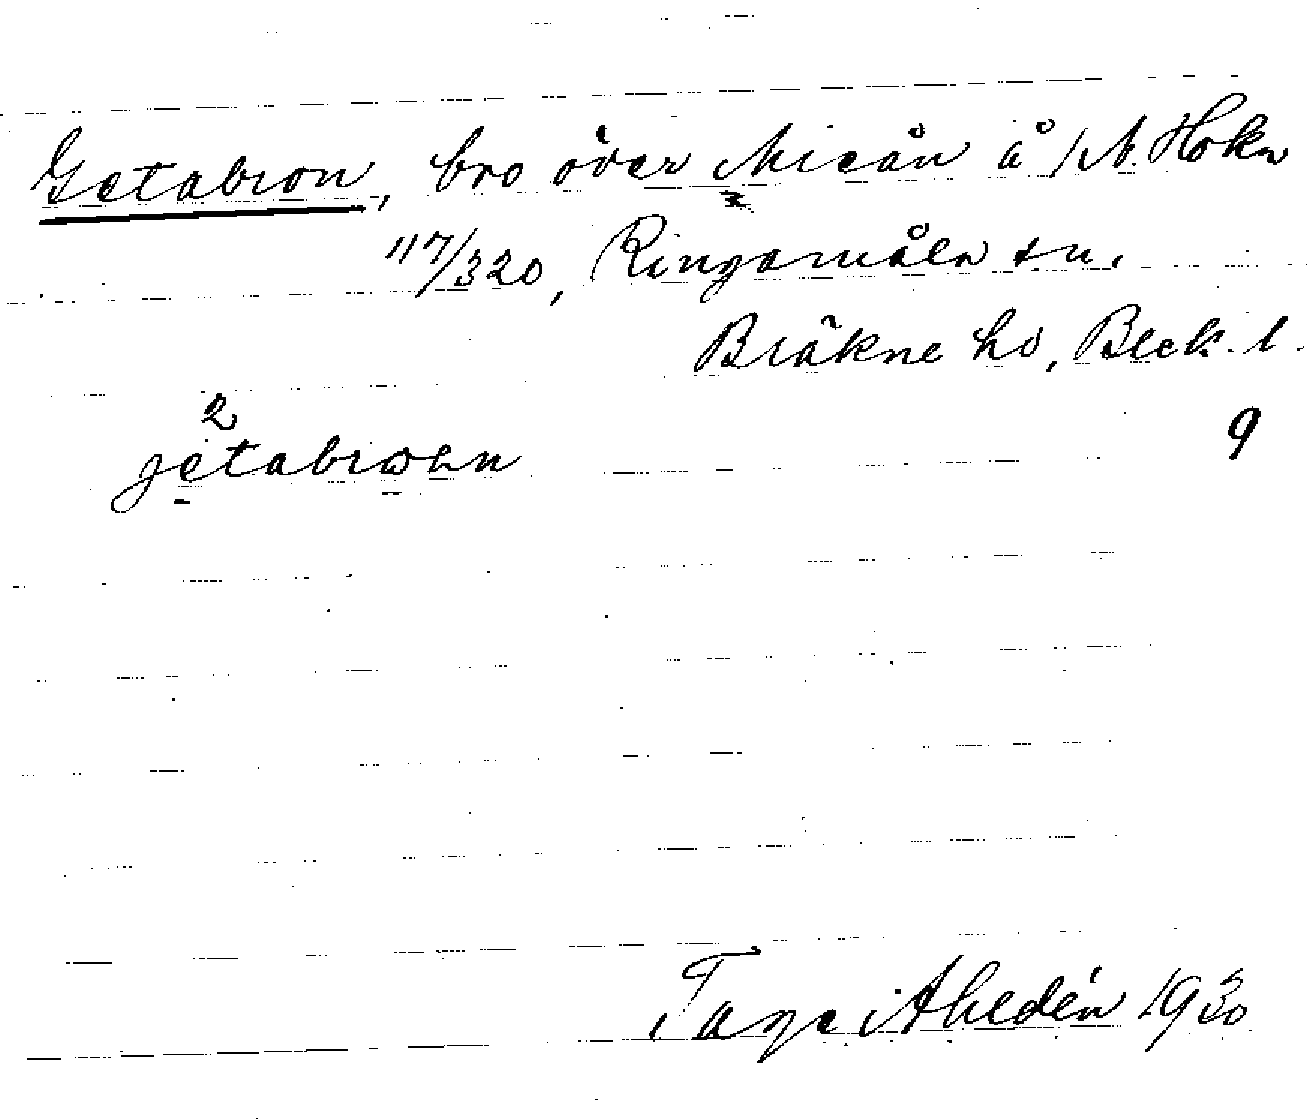 Getabron, bro över Mieån å 1/1 N. Hoka
117/320, Ringamåla sn.
Bräkne hd, Blek. l.
9
2
getabrωen
Tage Ahedén 1930